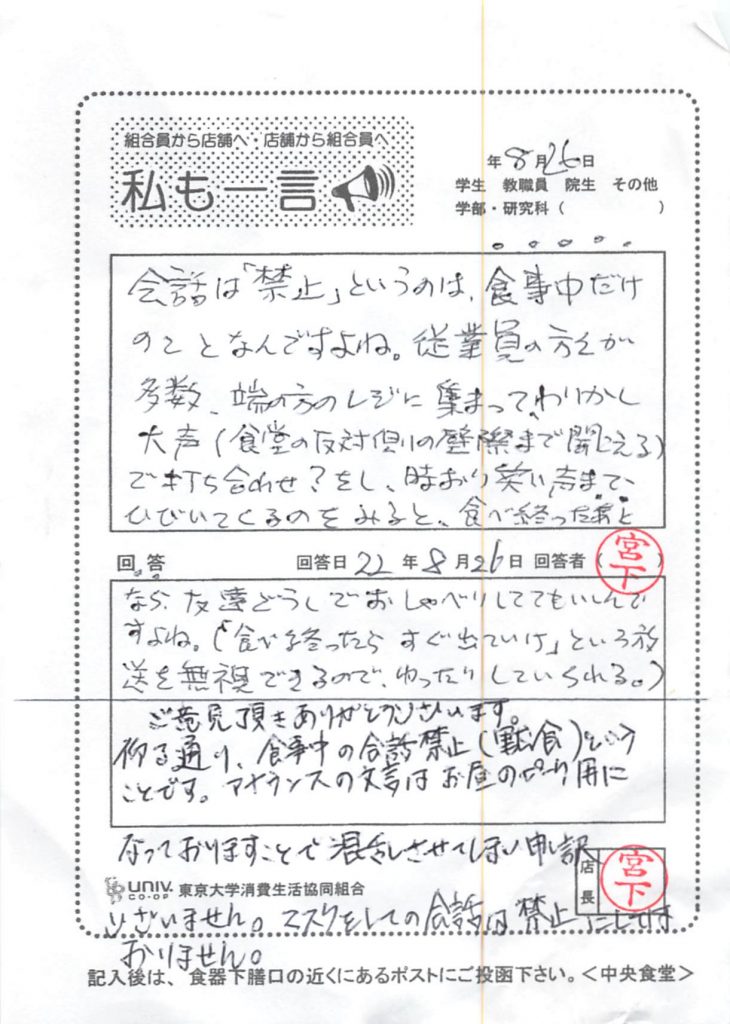 組合員から店舗へ・店舗から組合員へ
私も一言
年8月26日
学生 教職員 院生 その他
学部・研究科( )
会話は「禁止」というのは、食事中だけ
のことなんですよね。従業員の方々が
多数、端の方のレジに集まって、わりかし
大声(食堂の反対側の壁際まで聞こえる)
で打ち合わせ?をし、時おり笑い声まで、
ひびいてくるのをみると、食べ終った後と
回答 回答日 22年8月26日 回答者(宮下)
なら、友達どうしでおしゃべりしててもいいんで
すよね。(「食べ終ったらすぐ出ていけ」という放
送を無視できるので、ゆったりしていられる。)
ご意見頂きありがとうございます。
仰る通り、食事中の会話禁止(黙食)という
ことです。アナウンスの文言はお昼のピーク用に
なっておりますことで混乱させてしまい申し訳
店長 宮下
UNIV. CO-OP 東京大学消費生活協同組合
ございません。マスクをしての会話は"禁止"にしては
おりません。
記入後は、食器下膳口の近くにあるポストにご投函下さい。<中央食堂>